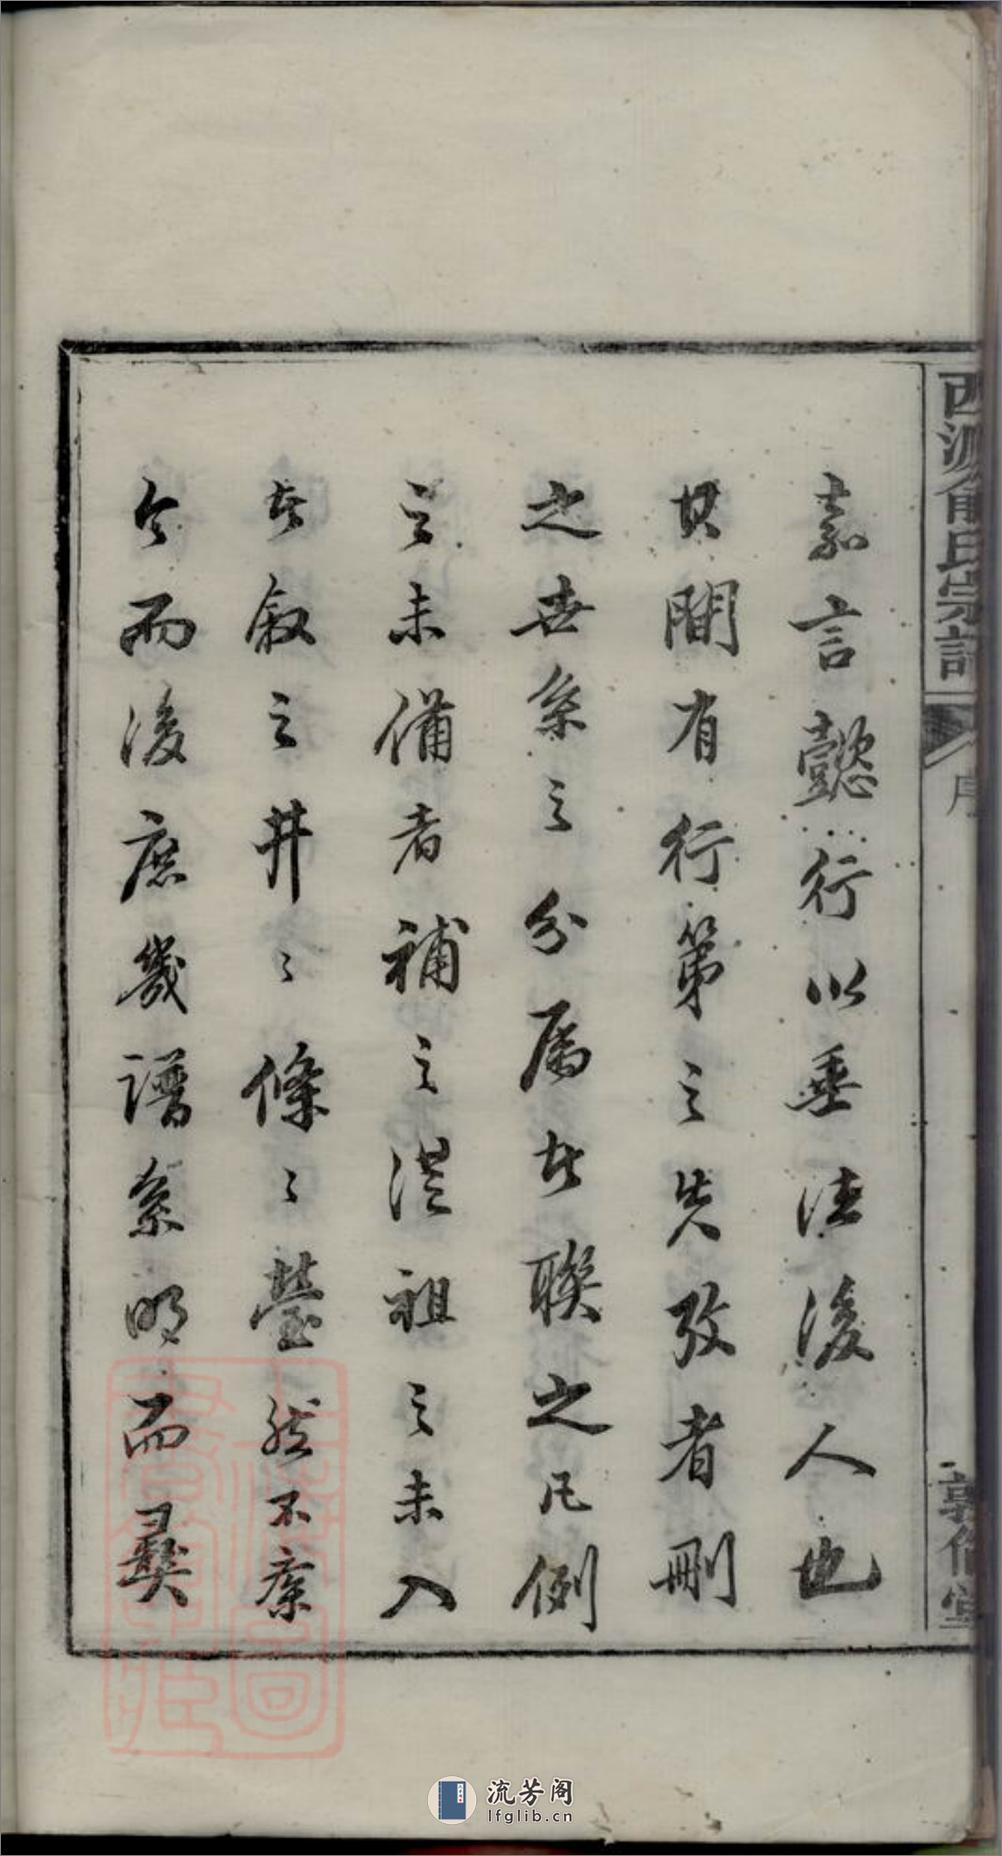 俞氏宗譜
序
敦倫堂
嘉言懿行以垂法後人也
其間有行第之失攷者刪
之世系之分属者聯之凡例
之未備者補之祖之未入
者敘之井〻條〻然不紊
今而後庶幾譜系明而彝
流芳阁
lfglib.cn